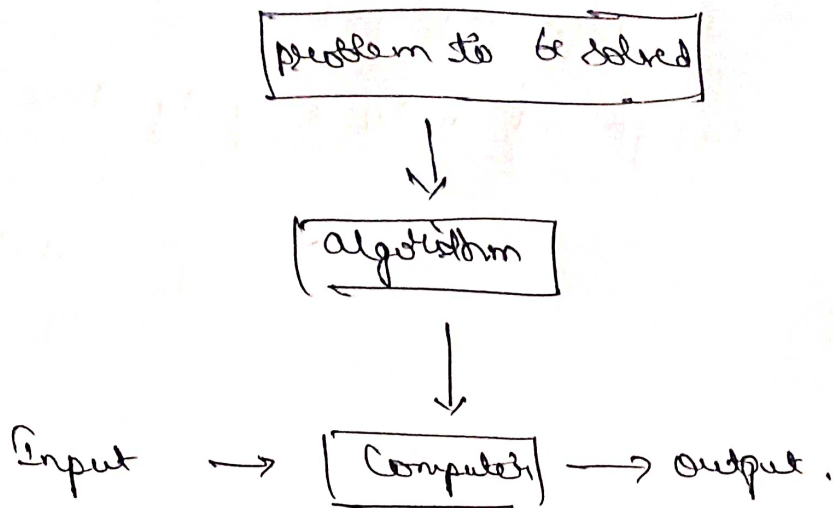 problem to be solved
algorithm
Input → Computer → output.